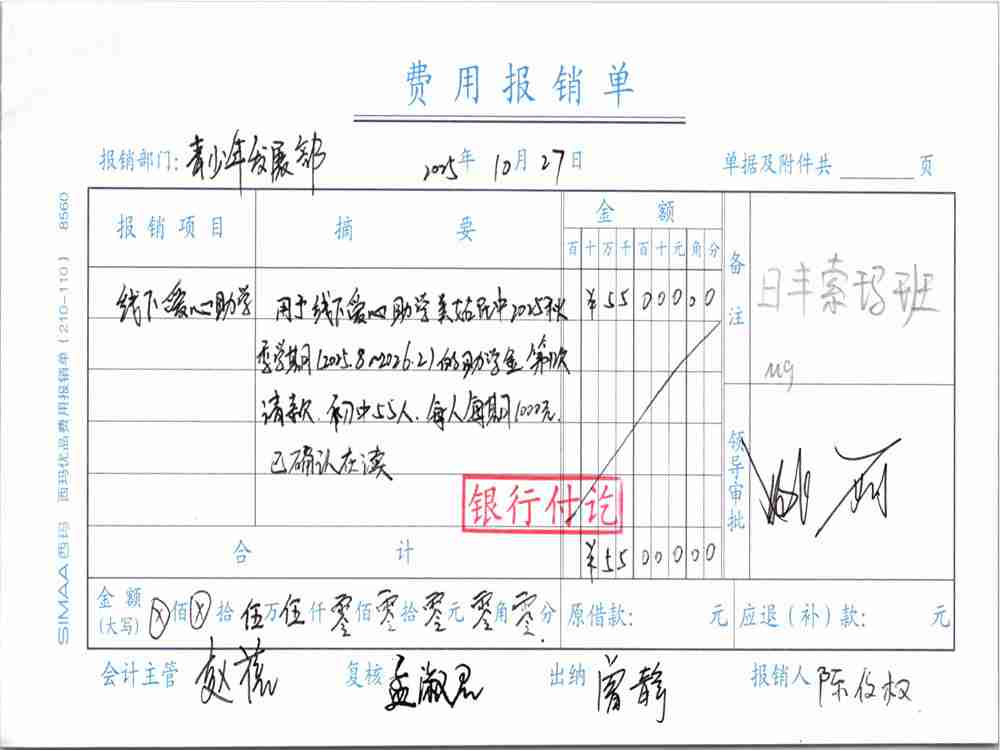 费用报销单
报销部门: 青少年发展部 2025年 10月 27日 单据及附件共 页
报销项目 摘要 金额 备注
百十万千百十元角分
线下爱心助学 用于线下爱心助学 2025秋 ¥5500000 日丰索玛班
季学期(2025.8~2026.2)的助学金 第1次
请款. 初中55人. 每人每期1000元. ng
已确认在读
领导审批
银行付讫
合计 ¥5500000
金额(大写) ⓧ佰ⓧ拾伍万伍仟零佰零拾零元零角零分. 原借款: 元 应退(补)款: 元
会计主管 赵 复核 孟淑君 出纳 曾静 报销人 陈俊权
SIMAA西玛 西玛优品费用报销单(210-110) 8560